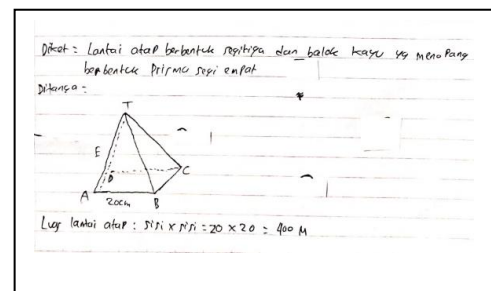 Diket : Lantai atap berbentuk segitiga dan balok kayu yg menopang
berbentuk Prisma segi empat
Ditanya :
T
E
D
C
A
B
20cm
Luas lantai atap : sisi x sisi = 20 x 20 = 400 M